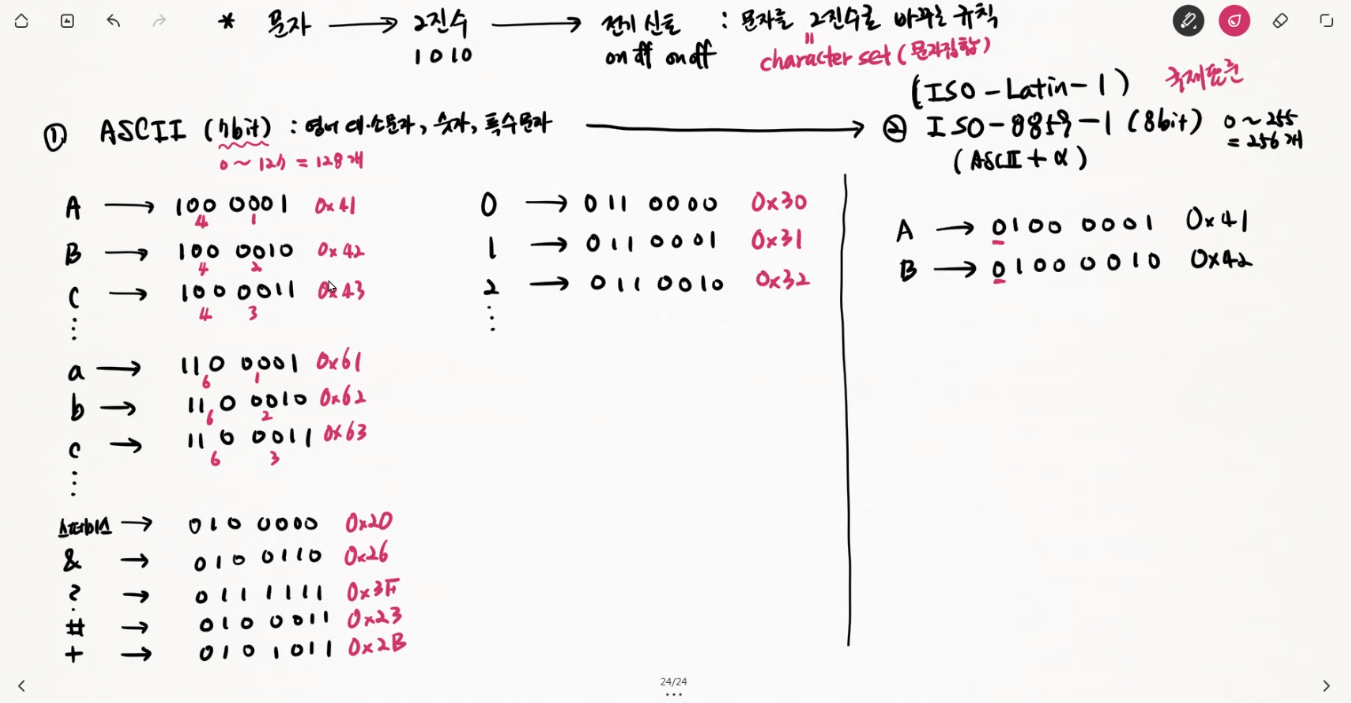 * 문자 → 2진수 → 전기 신호 : 문자를 2진수로 바꾸는 규칙
1 0 1 0 on off on off = character set (문자집합)
(ISO-Latin-1) 국제표준
① ASCII (7bit) : 영어 대·소문자, 숫자, 특수문자 → ② ISO-8859-1 (8bit) 0 ~ 255
0 ~ 127 = 128개 (ASCII + α) = 256개
A → 100 0001 0x41
4 1
B → 100 0010 0x42
4 2
C → 100 0011 0x43
4 3
⋮
a → 110 0001 0x61
6 1
b → 110 0010 0x62
6 2
c → 110 0011 0x63
6 3
⋮
스페이스 → 010 0000 0x20
& → 010 0110 0x26
? → 011 1111 0x3F
# → 010 0011 0x23
+ → 010 1011 0x2B
0 → 011 0000 0x30
1 → 011 0001 0x31
2 → 011 0010 0x32
⋮
A → 0100 0001 0x41
B → 0100 0010 0x42
24/24